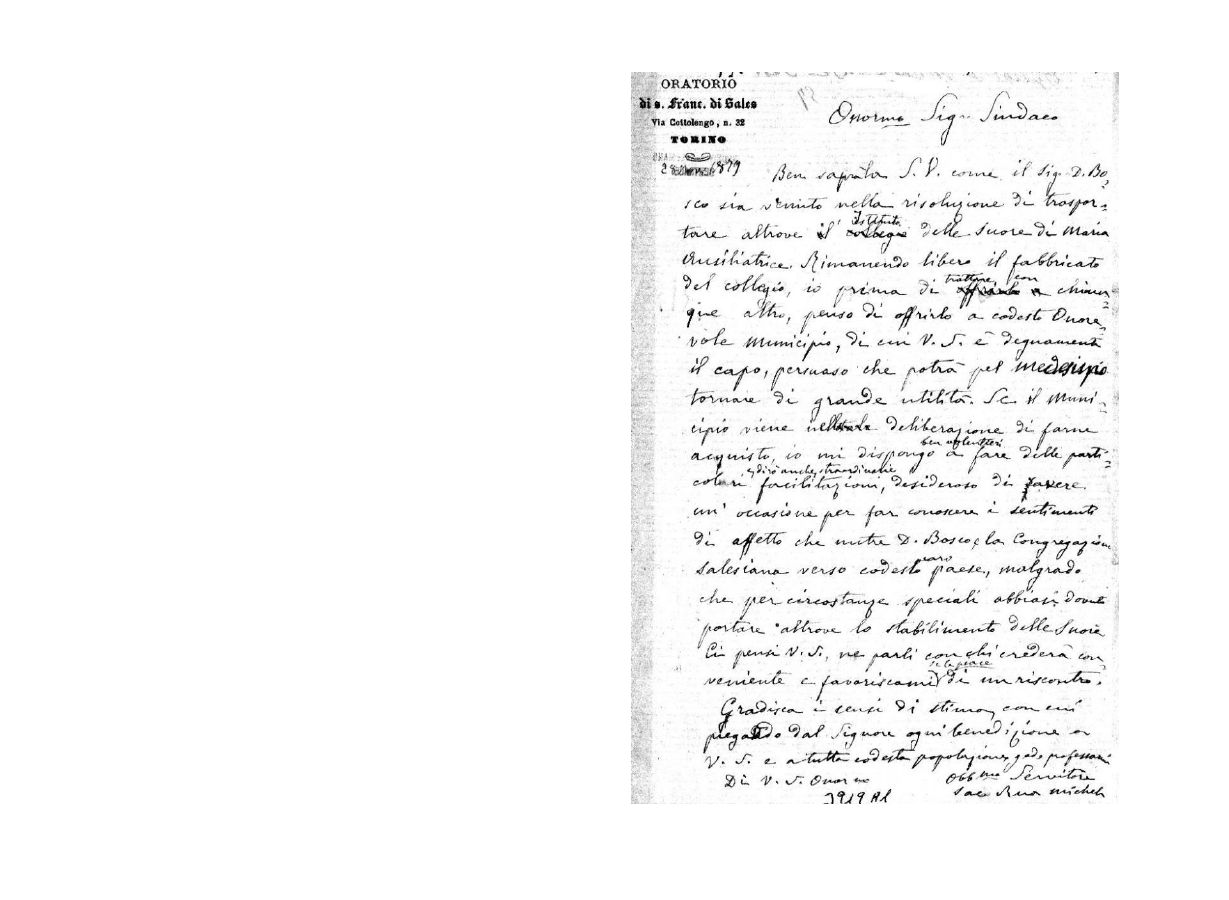 ORATORIO
di s. Franc. di Sales
Via Cottolengo, n. 32
TORINO
2 1879
Onormo Sigr Sindaco
Ben saprà la S. V. come il Sig. D. Bo
sco sia venuto nella risoluzione di traspor=
Istituto
tare altrove il collegio delle Suore di Maria
Ausiliatrice. Rimanendo libero il fabbricato
trattare con
del collegio, io prima di offrirlo a chiun=
que altro, penso di offrirlo a codesto Onore
vole Municipio, di cui V. S. è degnamente
il capo, persuaso che potrà pel medesimo
tornare di grande utilità. Se il Muni=
cipio viene nella deliberazione di farne
ben volentieri
acquisto, io mi dispongo a fare delle parti=
e dirò anche straordinarie
colari facilitazioni, desideroso di avere
un' occasione per far conoscere i sentimenti
di affetto che nutre D. Bosco e la Congregazione
caro
Salesiana verso codesto paese, malgrado
che per circostanze speciali abbiasi dovuto
portare altrove lo stabilimento delle Suore
Ci pensi V. S., ne parli con chi crederà con
se le piace
veniente e favoriscami di un riscontro.
Gradisca i sensi di stima, con cui
pregando dal Signore ogni benedizione a
V. S. e a tutta codesta popolazione, godo professarmi
Di V. S. Onormo
Obbmo Servitore
Sac. Rua Michele